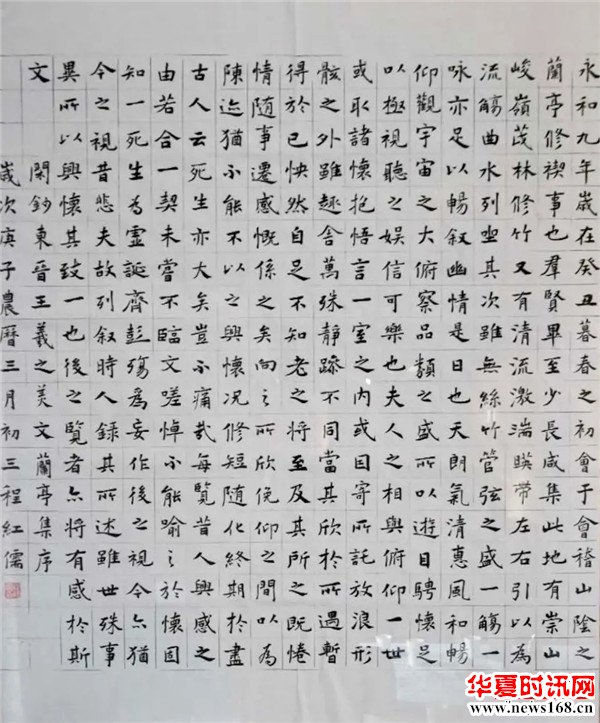 永和九年歲在癸丑暮春之初會于會稽山陰之
蘭亭修禊事也羣賢畢至少長咸集此地有崇山
峻嶺茂林修竹又有清流激湍暎帶左右引以為
流觴曲水列坐其次雖無絲竹管弦之盛一觴一
咏亦足以暢叙幽情是日也天朗氣清惠風和暢
仰觀宇宙之大俯察品類之盛所以遊目騁懷足
以極視聽之娛信可樂也夫人之相與俯仰一世
或取諸懷抱悟言一室之內或因寄所託放浪形
骸之外雖趣舍萬殊靜躁不同當其欣於所遇暫
得於己快然自足不知老之將至及其所之既惓
情隨事遷感慨係之矣向之所欣俛仰之間以為
陳迹猶不能不以之興懷況修短隨化終期於盡
古人云死生亦大矣豈不痛哉每覽昔人興感之
由若合一契未嘗不臨文嗟悼不能喻之於懷固
知一死生為虛誕齊彭殤為妄作後之視今亦猶
今之視昔悲夫故列叙時人錄其所述雖世殊事
異所以興懷其致一也後之覽者亦將有感於斯
文 閑鈔東晉王羲之美文蘭亭集序
歲次庚子農曆三月初三程紅儒
华夏时讯网
www.news168.cn